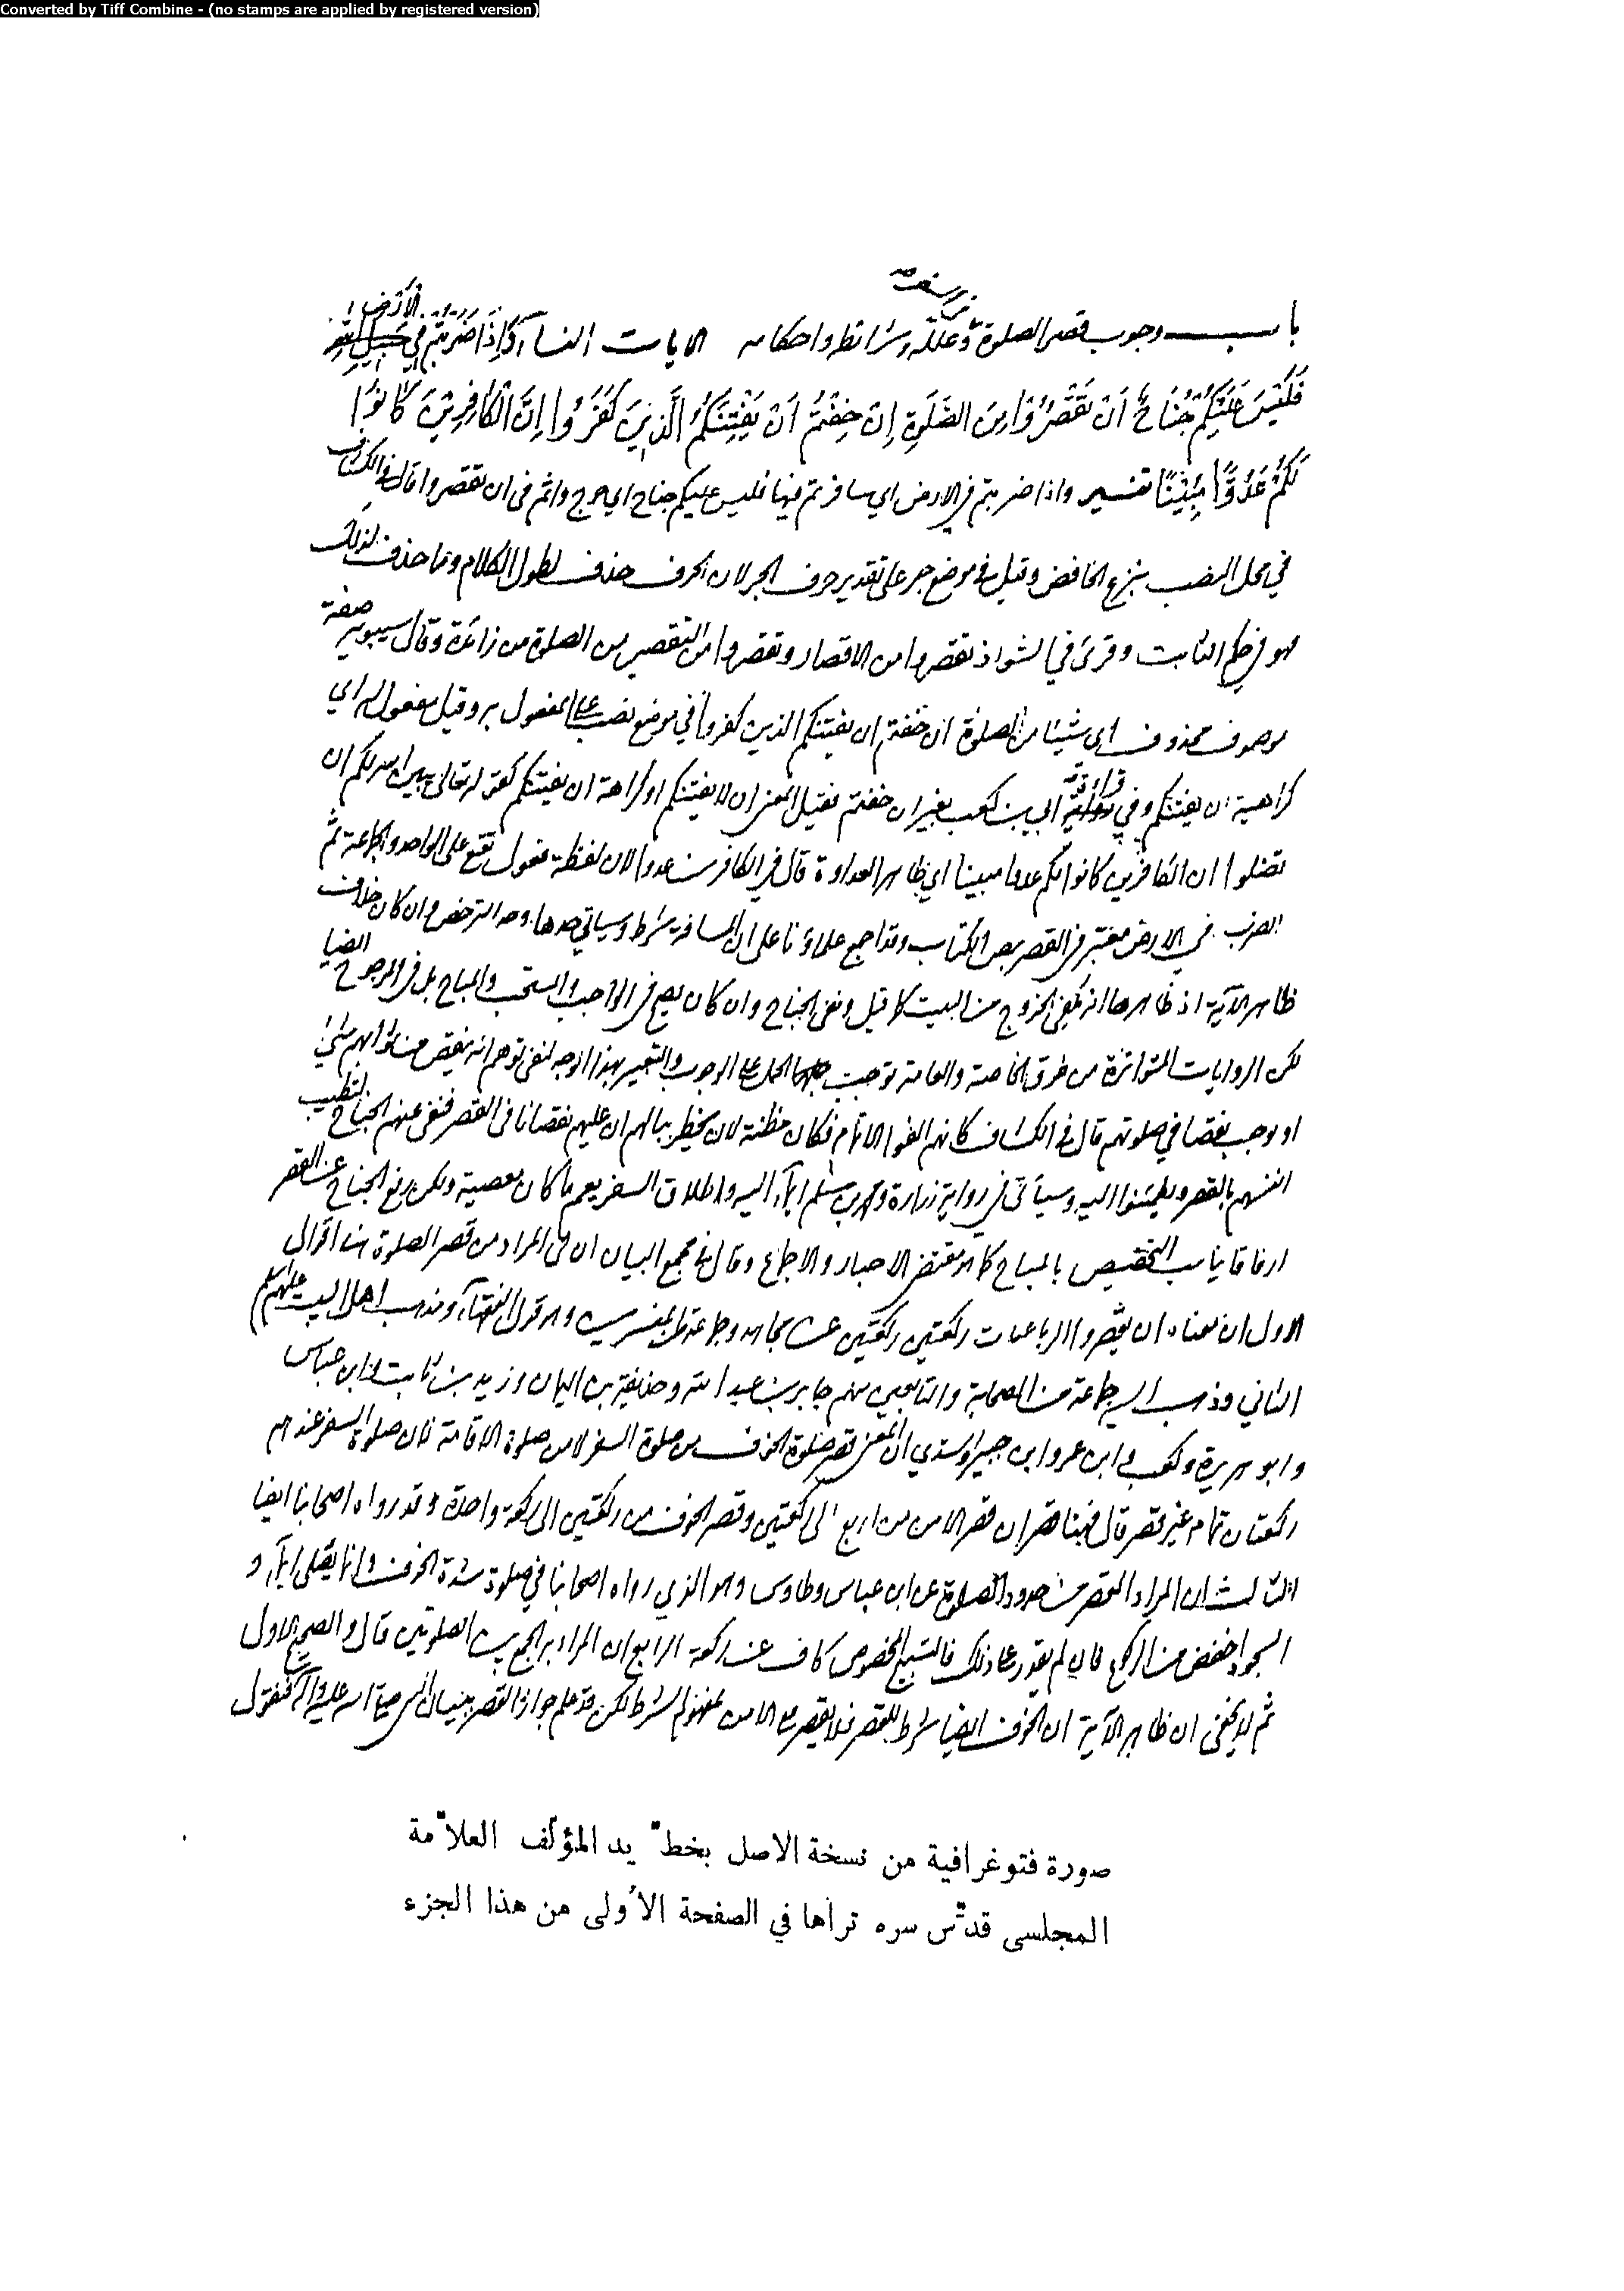 Converted by Tiff Combine - (no stamps are applied by registered version)
في السفر
باب وجوب قصر الصلوة وعلله وشرائطه واحكامه الايات النساء وَإِذَا ضَرَبْتُمْ فِي الْأَرْضِ
فَلَيْسَ عَلَيْكُمْ جُنَاحٌ أَنْ تَقْصُرُوا مِنَ الصَّلَوةِ إِنْ خِفْتُمْ أَنْ يَفْتِنَكُمُ الَّذِينَ كَفَرُوا إِنَّ الْكَافِرِينَ كَانُوا
لَكُمْ عَدُوًّا مُبِينًا تفسير واذا ضربتم في الارض اي سافرتم فيها فليس عليكم جناح اي حرج واثم في ان تقصروا قال في الكشاف
في محل النصب بنزع الخافض وقيل في موضع جر على تقدير حرف الجر لان الحرف حذف لطول الكلام وما حذف لذلك
فهو في حكم الثابت وقرئ في الشواذ تقصروا من الاقصار وتقصروا من التقصير من الصلوة من زائدة وقال سيبويه صفة
موصوف محذوف اي شيئا من الصلوة ان خفتم ان يفتنكم الذين كفروا في موضع نصب على المفعول به وقيل مفعول له اي
كراهية ان يفتنكم وفي قراءة ابي بن كعب بغير ان خفتم فقيل المعنى ان لا يفتنكم او كراهة ان يفتنكم كقوله تعالى يبين الله لكم ان
تضلوا ان الكافرين كانوا لكم عدوا مبينا اي ظاهر العداوة قال في الكافرين عدوا لان لفظة فعول تقع على الواحد والجماعة ثم
الضرب في الارض معتبر في القصر بنص الكتاب وقد اجمع علماؤنا على ان المسافة شرط وسياتي حدها وحد الترخص وان كان خلاف
ظاهر الآية اذ ظاهرها انه يكفي الخروج من البيت كما قيل ونفي الجناح وان كان يصح في الواجب والمستحب والمباح بل في المرجوح ايضا
لكن الروايات المتواترة من طرق الخاصة والعامة توجب الحمل على الوجوب والتعبير بهذا الوجه لنفي توهم انه ينقص من ثوابهم شيئ
او يوجب نقصا في صلوتهم قال في الكشاف كانهم الفوا الاتمام فكان مظنة لان يخطر ببالهم ان عليهم نقصانا في القصر فنفى عنهم الجناح لتطيب
انفسهم بالقصر ويطمئنوا اليه وسيأتي في رواية زرارة ومحمد بن مسلم ايماء اليه واطلاق السفر يعم ما كان معصية ولكن رفع الجناح عن القصر
ارفاقا يناسب التخصيص بالمباح كما هو مقتضى الاخبار والاجماع وقال في مجمع البيان ان في المراد من قصر الصلوة هنا اقوالا
الاول ان معناه ان يقصروا الرباعيات ركعتين ركعتين عن مجاهد وجماعة من المفسرين وهو قول الفقهاء ومذهب اهل البيت عليهم السلم
الثاني وذهب اليه جماعة من الصحابة والتابعين منهم جابر بن عبد الله وحذيفة بن اليمان وزيد بن ثابت وابن عباس
وابو هريرة وكعب وابن عمر وابن جبير والسدي ان المعنى قصر صلوة الخوف من صلوة السفر لا من صلوة الاقامة فان صلوة السفر عندهم
ركعتان تمام غير قصر قال فهنا قصران قصر الامن من اربع الى ركعتين وقصر الخوف من ركعتين الى ركعة واحدة وقد رواه اصحابنا ايضا
الثالث ان المراد القصر من حدود الصلوة عن ابن عباس وطاوس وهو الذي رواه اصحابنا في صلوة شدة الخوف وانها يصلى ايماء و
السجود اخفض من الركوع فان لم يقدر على ذلك فالتسبيح المخصوص كاف عن ركعة الرابع ان المراد به الجمع بين الصلوتين قال والصحيح الاول
ثم لا يخفى ان ظاهر الآية ان الخوف ايضا شرط للقصر فلا يقصر مع الامن لمفهوم الشرط لكن قد علم جواز القصر ببيان النبي صلى الله عليه وآله فنقول
صورة فتوغرافية من نسخة الاصل بخطّ يد المؤلّف العلاّمة
المجلسى قدّس سره تراها في الصفحة الأولى من هذا الجزء